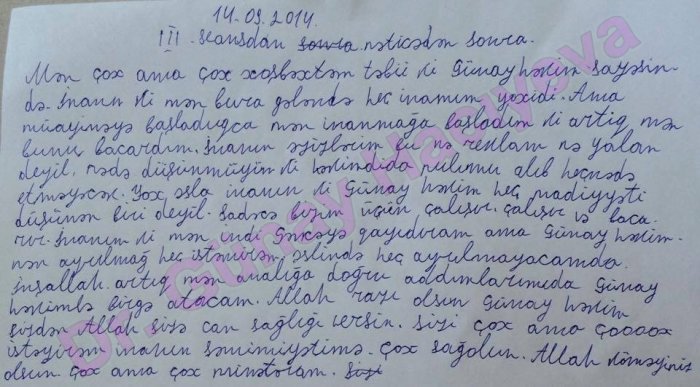 14.09.2014.
III. seansdan sonra nəticədən sonra.
Mən çox ama çox xoşbəxtəm təbii ki Günay həkim sayəsin-
də. İnanın ki mən bura gələndə heç inamım yoxidi. Ama
müayinəyə başladıqca mən inanmağa başladım ki artıq mən
bunu bacardım. İnanın əzizlərim bu nə reklam nə yalan
deyil, nədə düşünmüyün ki həkimdida pulumu alıb heçnədə
etməyəcək. Yox əsla inanın ki Günay həkim heç madiyyəti
düşünən biri deyil. Sadəcə bizim üçün çalışır. çalışır və baca-
rır. İnanın ki mən indi Gəncəyə qayıdıram ama Günay həkim-
nən ayrılmağ heç istəmirəm, əslində heç ayrılmayacamda.
İnşallah artıq mən analığa doğru addımlarımıda Günay
həkimlə birgə atacam. Allah razı olsun Günay həkim
sizdən Allah sizə can sağlığı versin. Sizi çox ama çooox
istəyirəm inanın səmimiyətimə. Çox sağolun. Allah köməyiniz
olsun. Çox ama çox minətdram. Sizi
Dr. Günay Hacıyeva